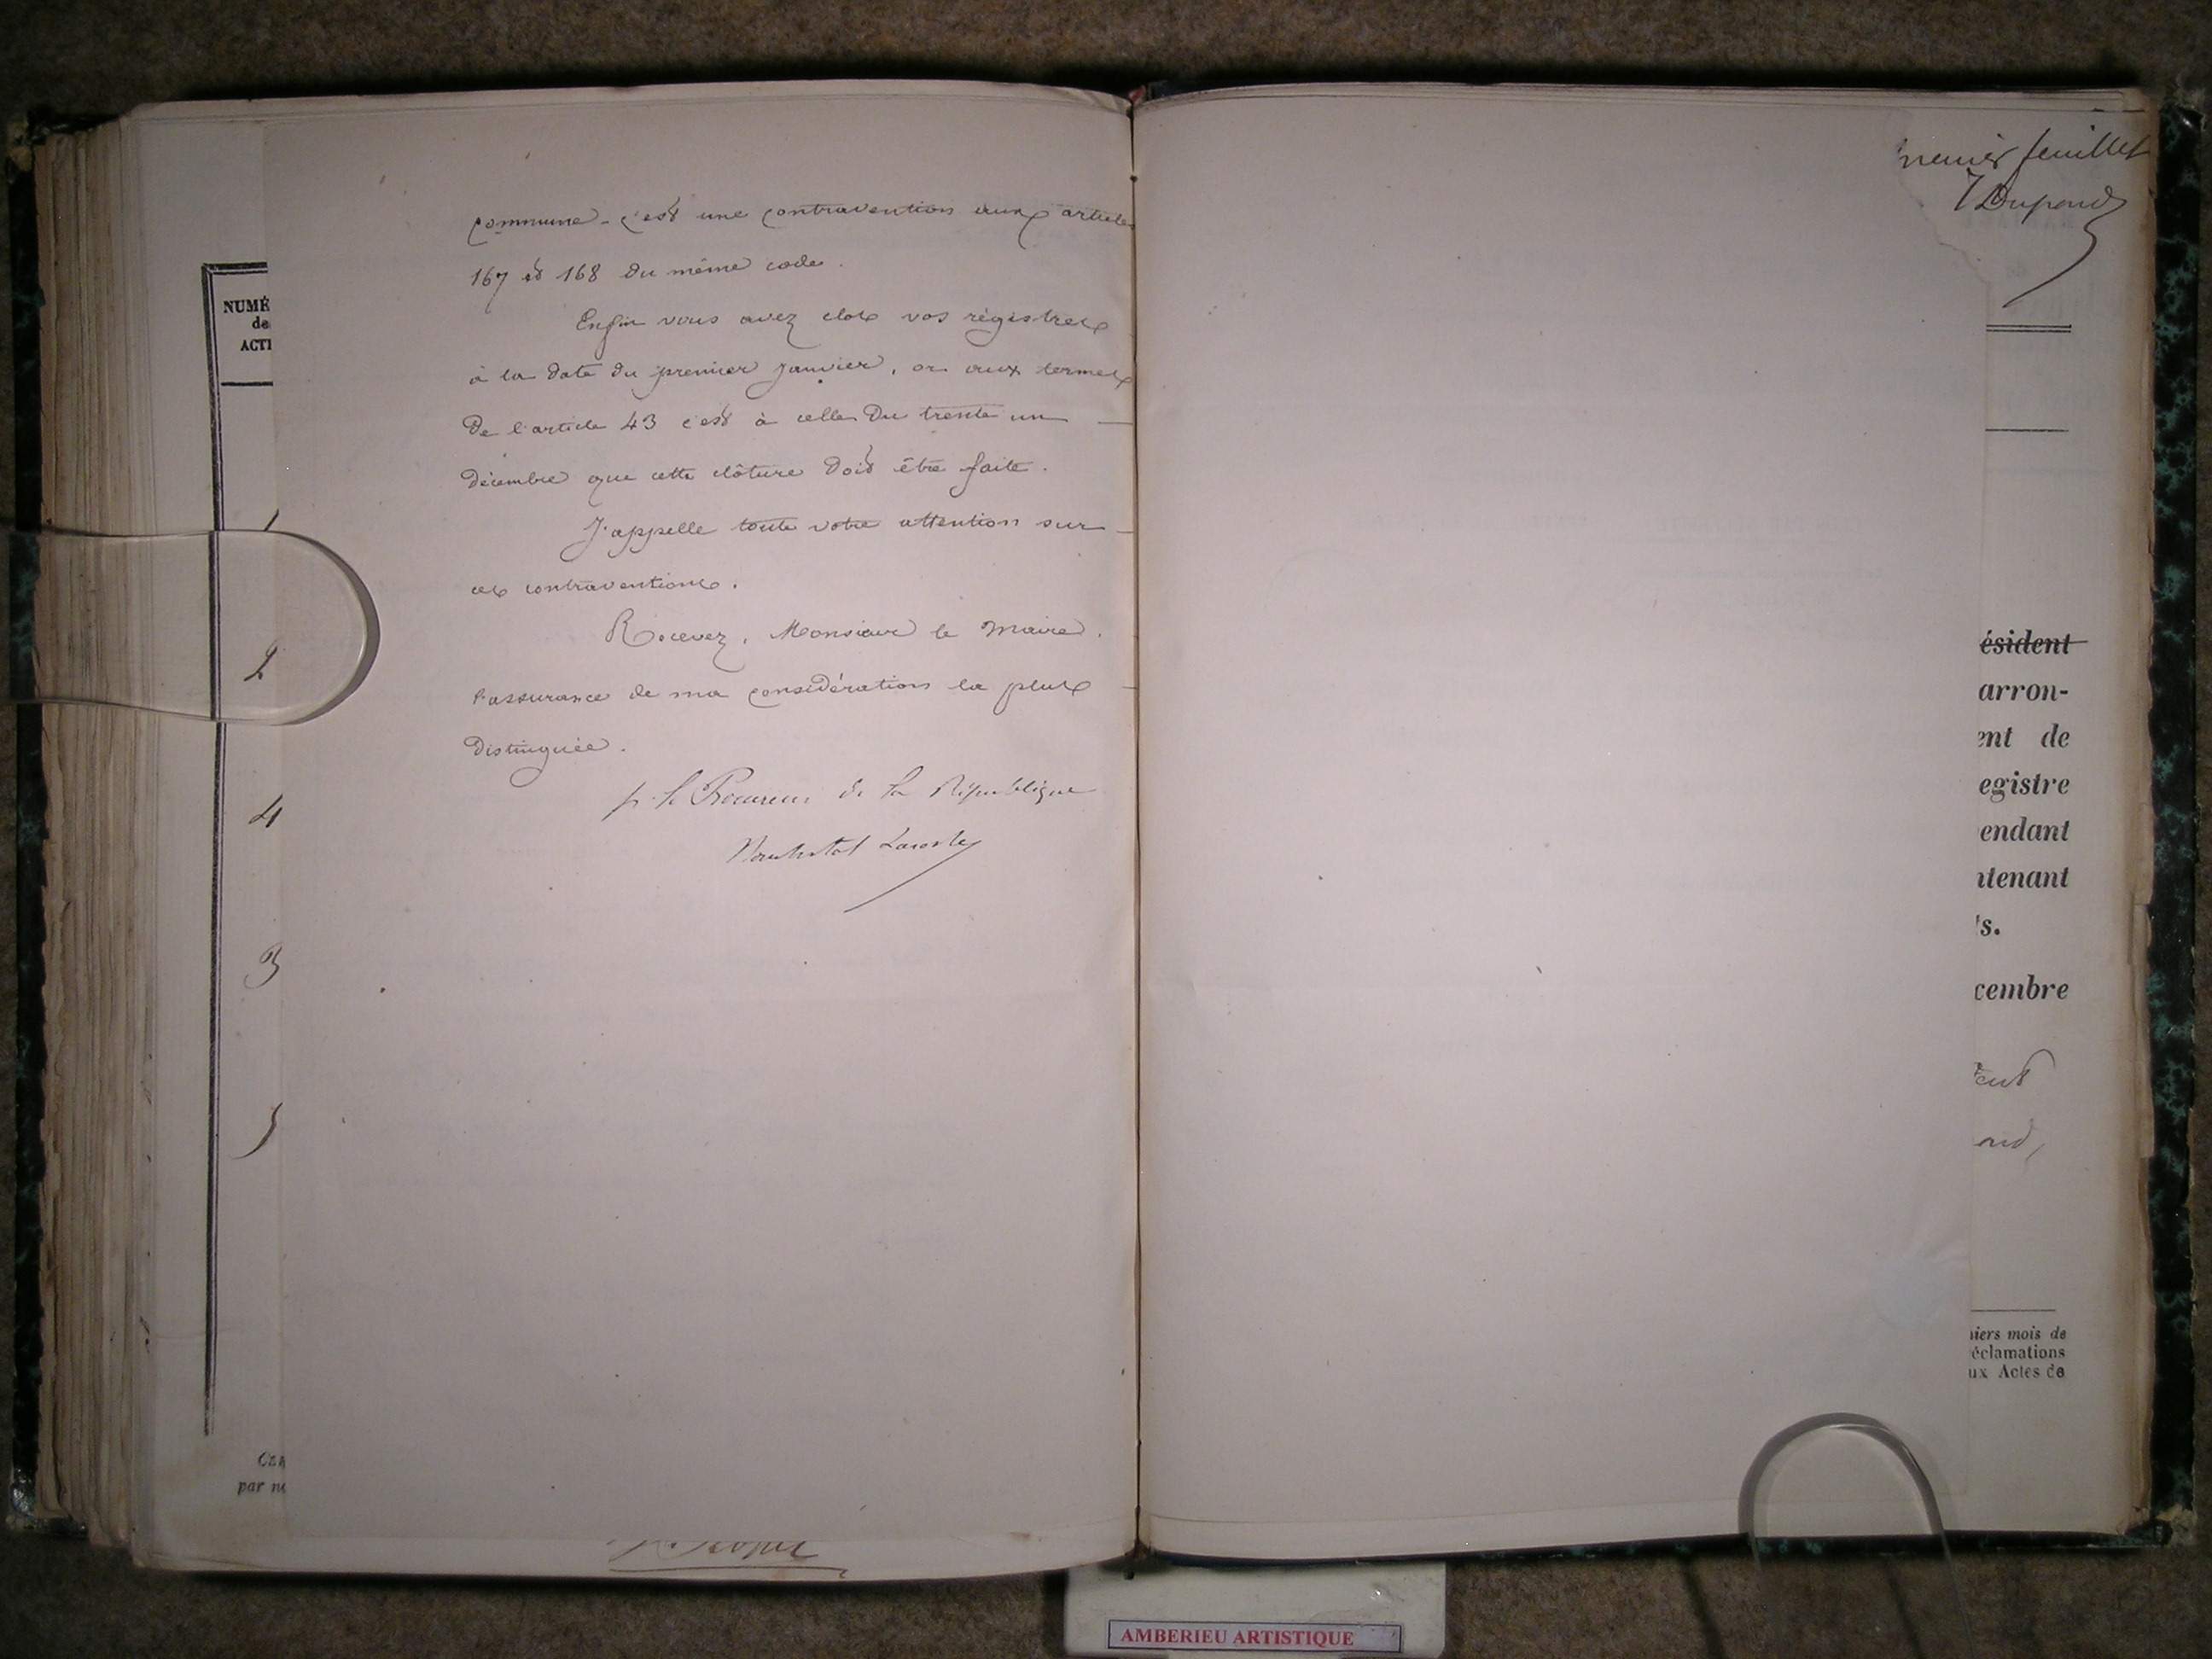 commune - c'est une contravention aux articles
167 et 168 du même code.
Enfin vous avez clos vos régistres
à la date du premier janvier, or aux termes
de l'article 43 c'est à celle du trente un
décembre que cette clôture doit être faite.
J'appelle toute votre attention sur
ces contraventions.
Recevez, Monsieur le Maire,
l'assurance de ma considération la plus
distinguée.
p. le Procureur de la République
NUMÉ
de
ACTI
1
2
4
3
5
par n
feuillet
Dupond
ésident
arron-
ent de
egistre
endant
ntenant
s.
cembre
iers mois de
éclamations
ux Actes de
AMBERIEU ARTISTIQUE